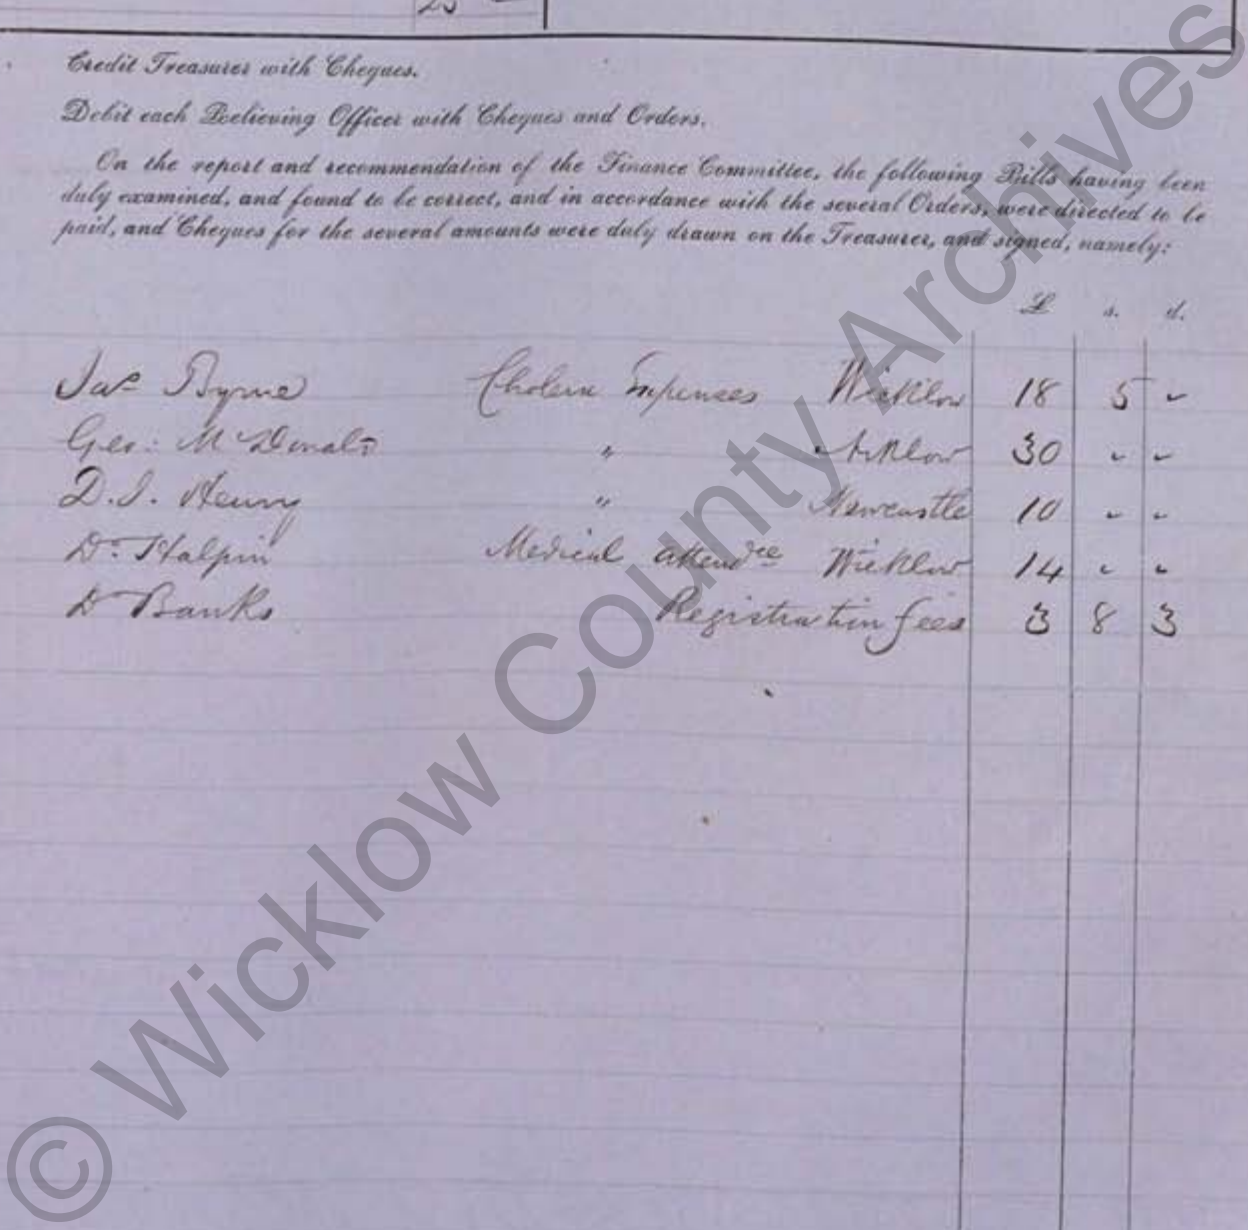 25
Credit Treasurer with Cheques.
Debit each Relieving Officer with Cheques and Orders.
On the report and recommendation of the Finance Committee, the following Bills having been
duly examined, and found to be correct, and in accordance with the several Orders, were directed to be
paid, and Cheques for the several amounts were duly drawn on the Treasurer, and signed, namely:
£ s. d.
Jas Byrne Cholera Expenses Wicklow 18 5 -
Geo: McDonald " Arklow 30 - -
D. J. Henry " Newcastle 10 - -
Dr. Halpin Medical attendce Wicklow 14 - -
Dr Banks Registration fees 3 8 3
© Wicklow County Archives